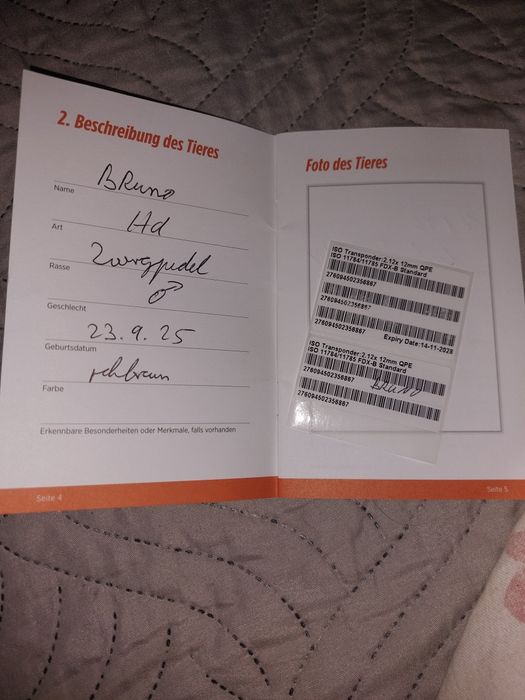 2. Beschreibung des Tieres
Bruno
Name
Hd
Art
Zwergpudel
Rasse
♂
Geschlecht
23.9.25
Geburtsdatum
rehbraun
Farbe
Erkennbare Besonderheiten oder Merkmale, falls vorhanden
Seite 4
Foto des Tieres
ISO Transponder:2,12x 12mm QPE
ISO 11784/11785 FDX-B Standard
276094502356867
276094502356867
276094502356867
Expiry Date:14-11-2028
ISO Transponder:2,12x 12mm QPE
ISO 11784/11785 FDX-B Standard
276094502356867
Bruno
276094502356867
Seite 5